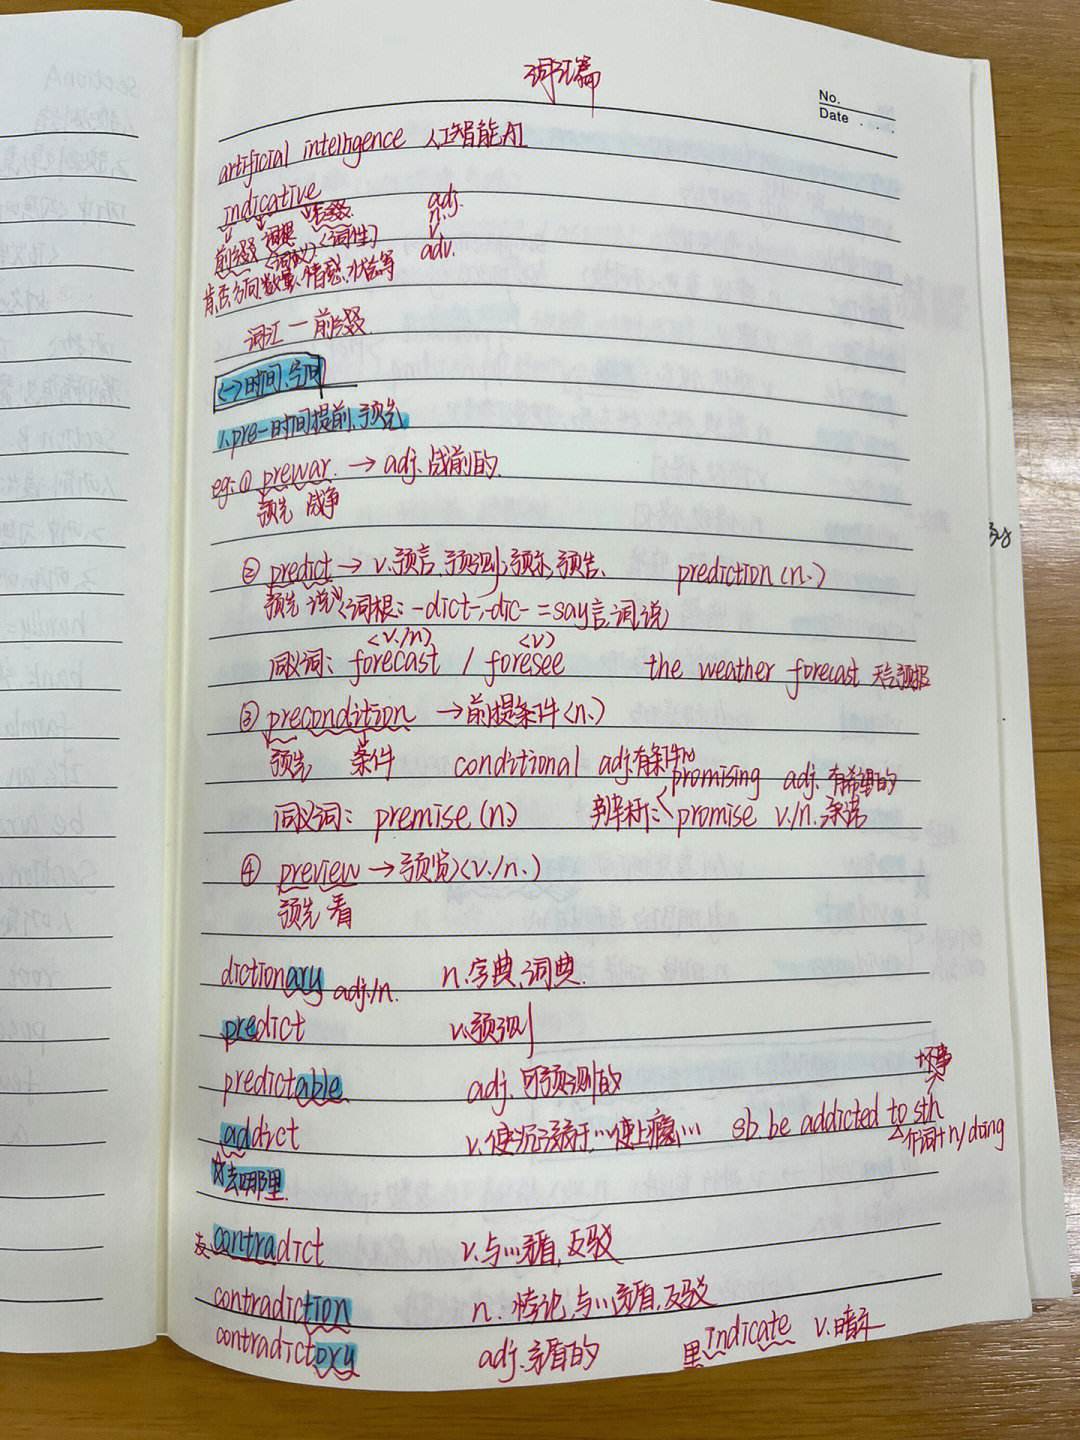 词汇篇
No.
Date . .
artificial intelligence 人工智能AI
indicative
前缀 词根 后缀 adj.
<词义> <词性> n.
肯否,方向,数量,情感,状态等 adv.
词汇 — 前缀
<一>时间、空间
1.pre-时间提前、预先
eg:① prewar. → adj. 战前的
预先 战争
② predict → v.预言,预测,预示,预告、 prediction (n.)
预先 说 <词根: -dict-,-dic- = say言,词,说>
<v./n> <v>
同义词: forecast / foresee the weather forecast 天气预报
③ precondition → 前提条件<n.>
预先 条件 conditional adj.有条件的
promising adj. 有希望的
同义词: premise (n) 辨析:< promise v./n. 承诺
④ preview → 预览<v./n.>
预先 看
dictionary adj./n. n.字典,词典.
predict v.预测
predictable adj. 可预测的
坏事
addict v.使沉溺于…使上瘾… sb. be addicted to sth
介词+n/doing
去哪里
反 contradict v.与…矛盾,反驳
contradiction n. 悖论,与…矛盾,反驳
contradictory adj.矛盾的 里 indicate v.暗示